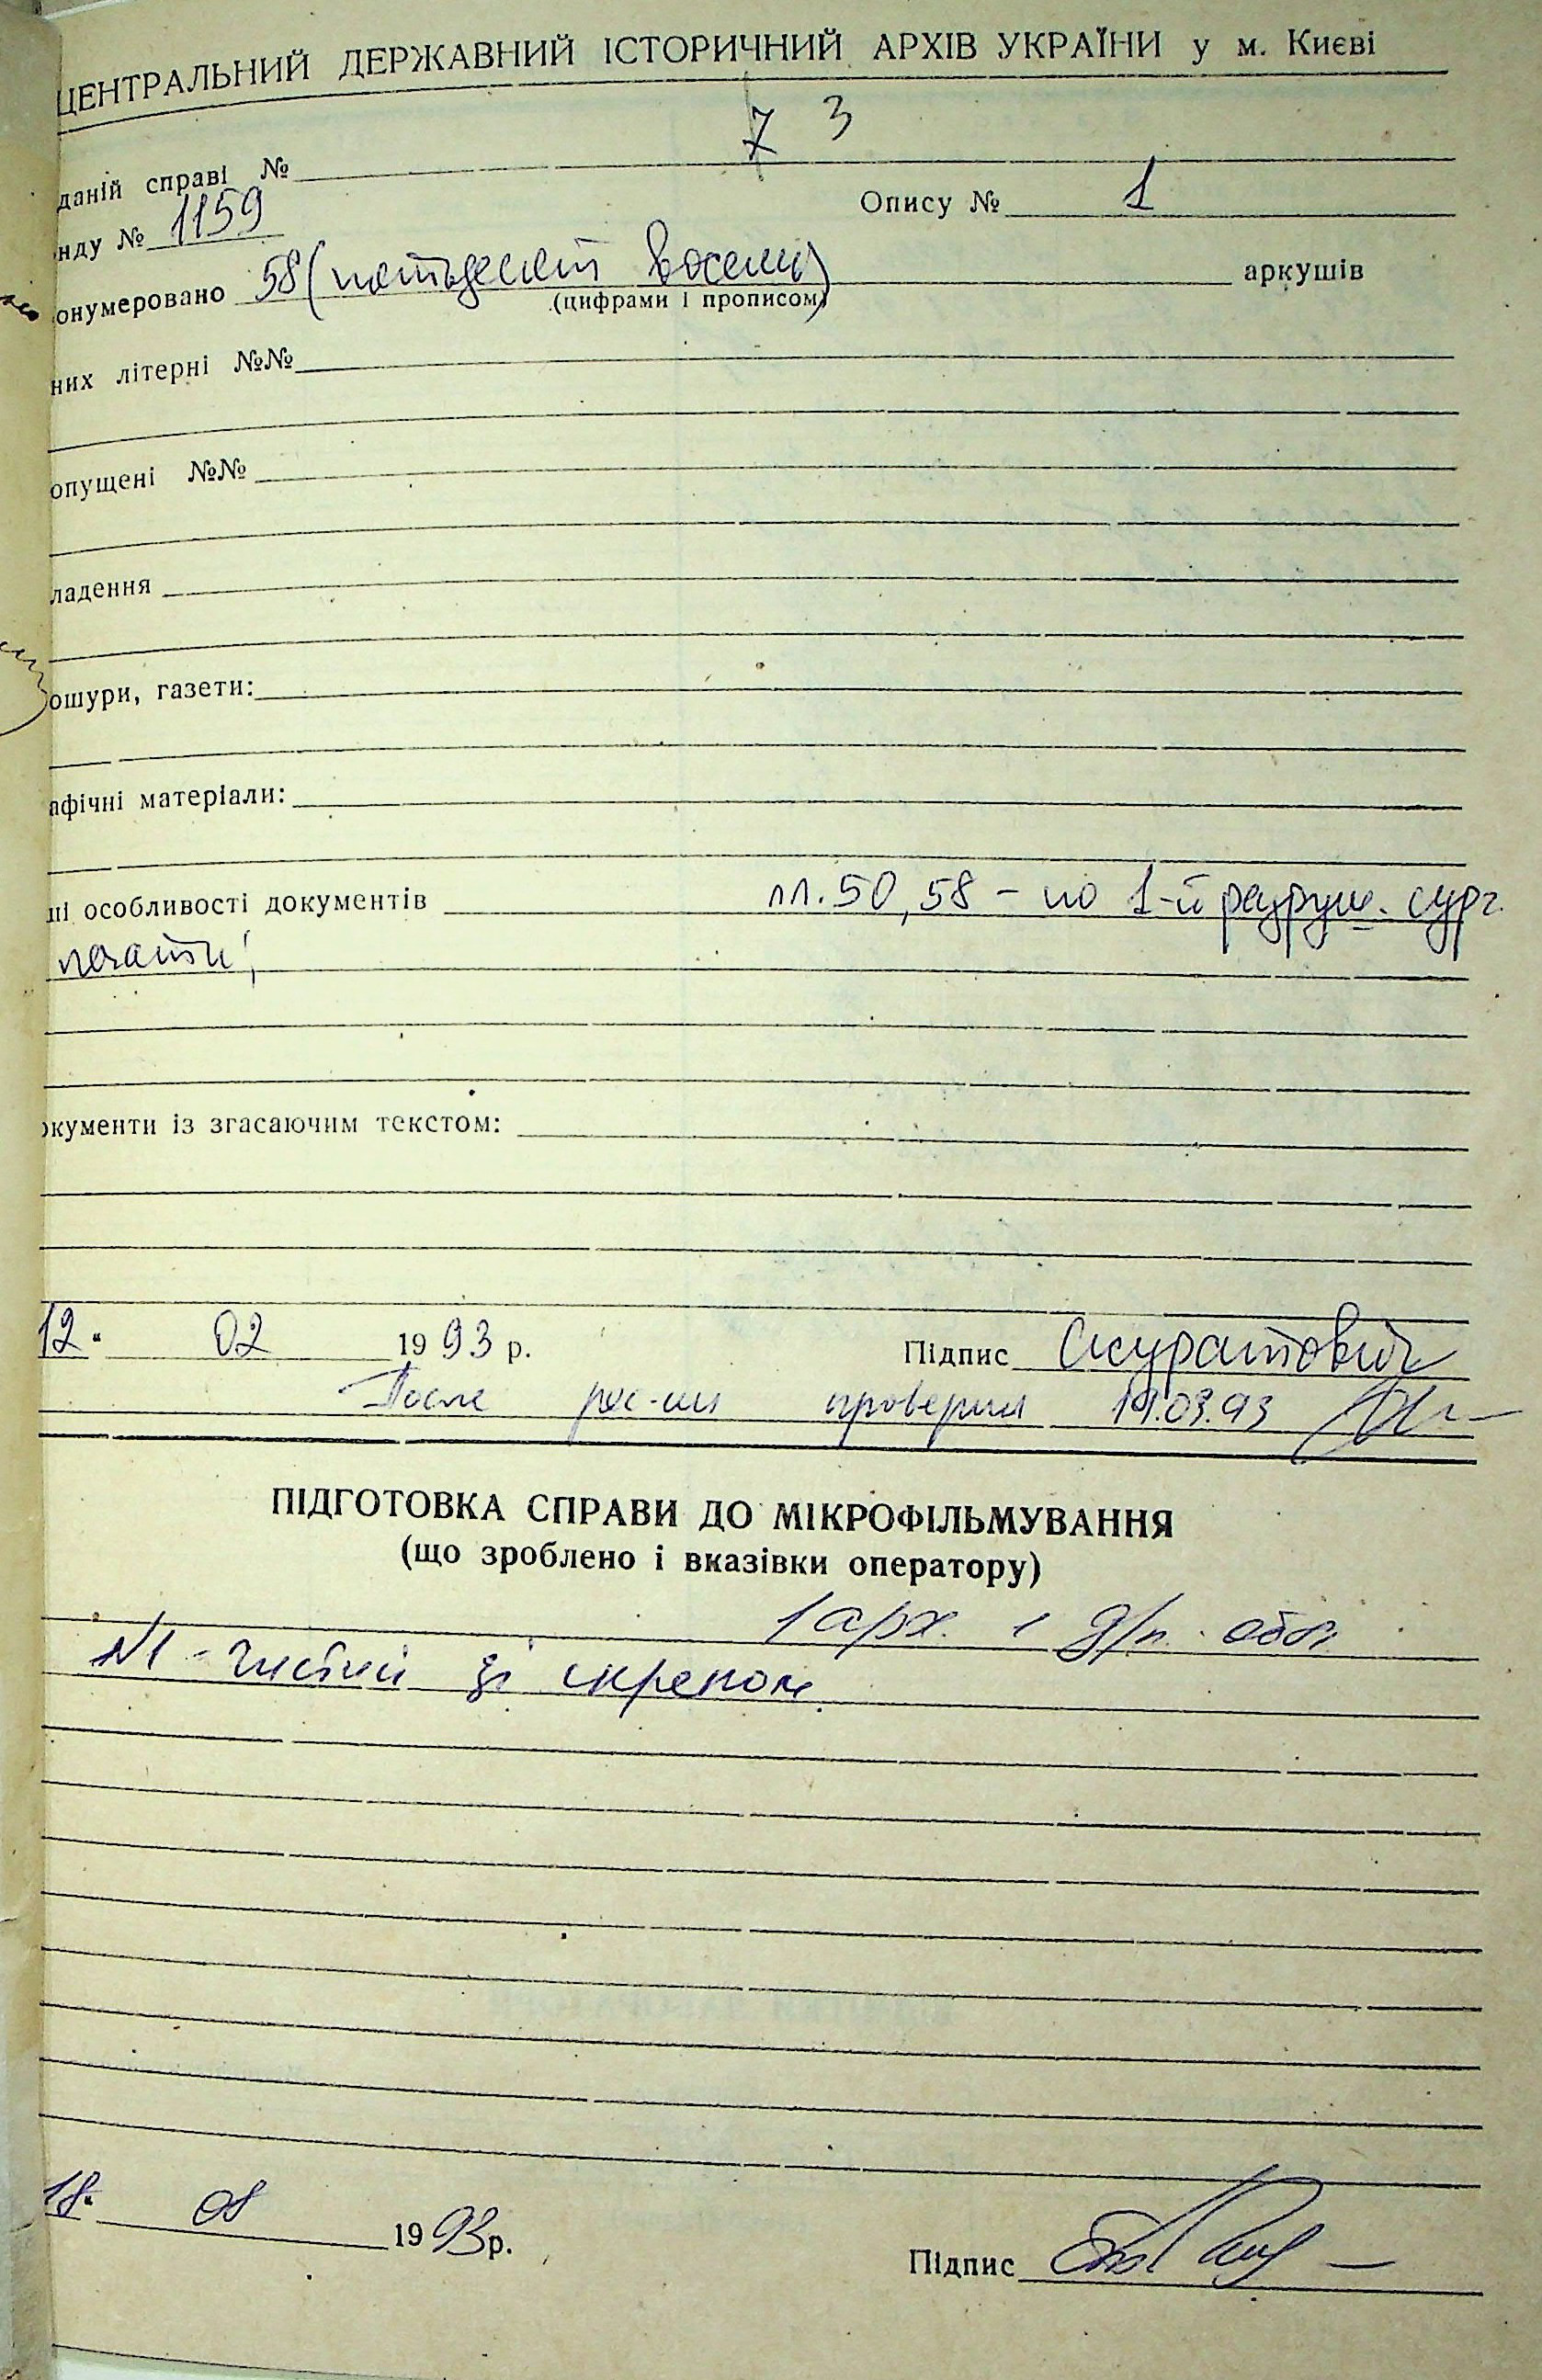 ЦЕНТРАЛЬНИЙ ДЕРЖАВНИЙ ІСТОРИЧНИЙ АРХІВ УКРАЇНИ у м. Києві
даній справі № 7 3
нду № 1159 Опису № 1
онумеровано 58 (пятьдесят восемь) аркушів
(цифрами і прописом)
них літерні №№
опущені №№
ладення
ошури, газети:
афічні матеріали:
ші особливості документів лл. 50, 58 - по 1-й разруш. сург.
печати;
окументи із згасаючим текстом:
12 " 02 1993 р. Підпис Скуратович
После рес-ии проверил 19.03.93
ПІДГОТОВКА СПРАВИ ДО МІКРОФІЛЬМУВАННЯ
(що зроблено і вказівки оператору)
1 арк.
№1 - чистий зі скрепою
18 " 08 1993 р.
Підпис